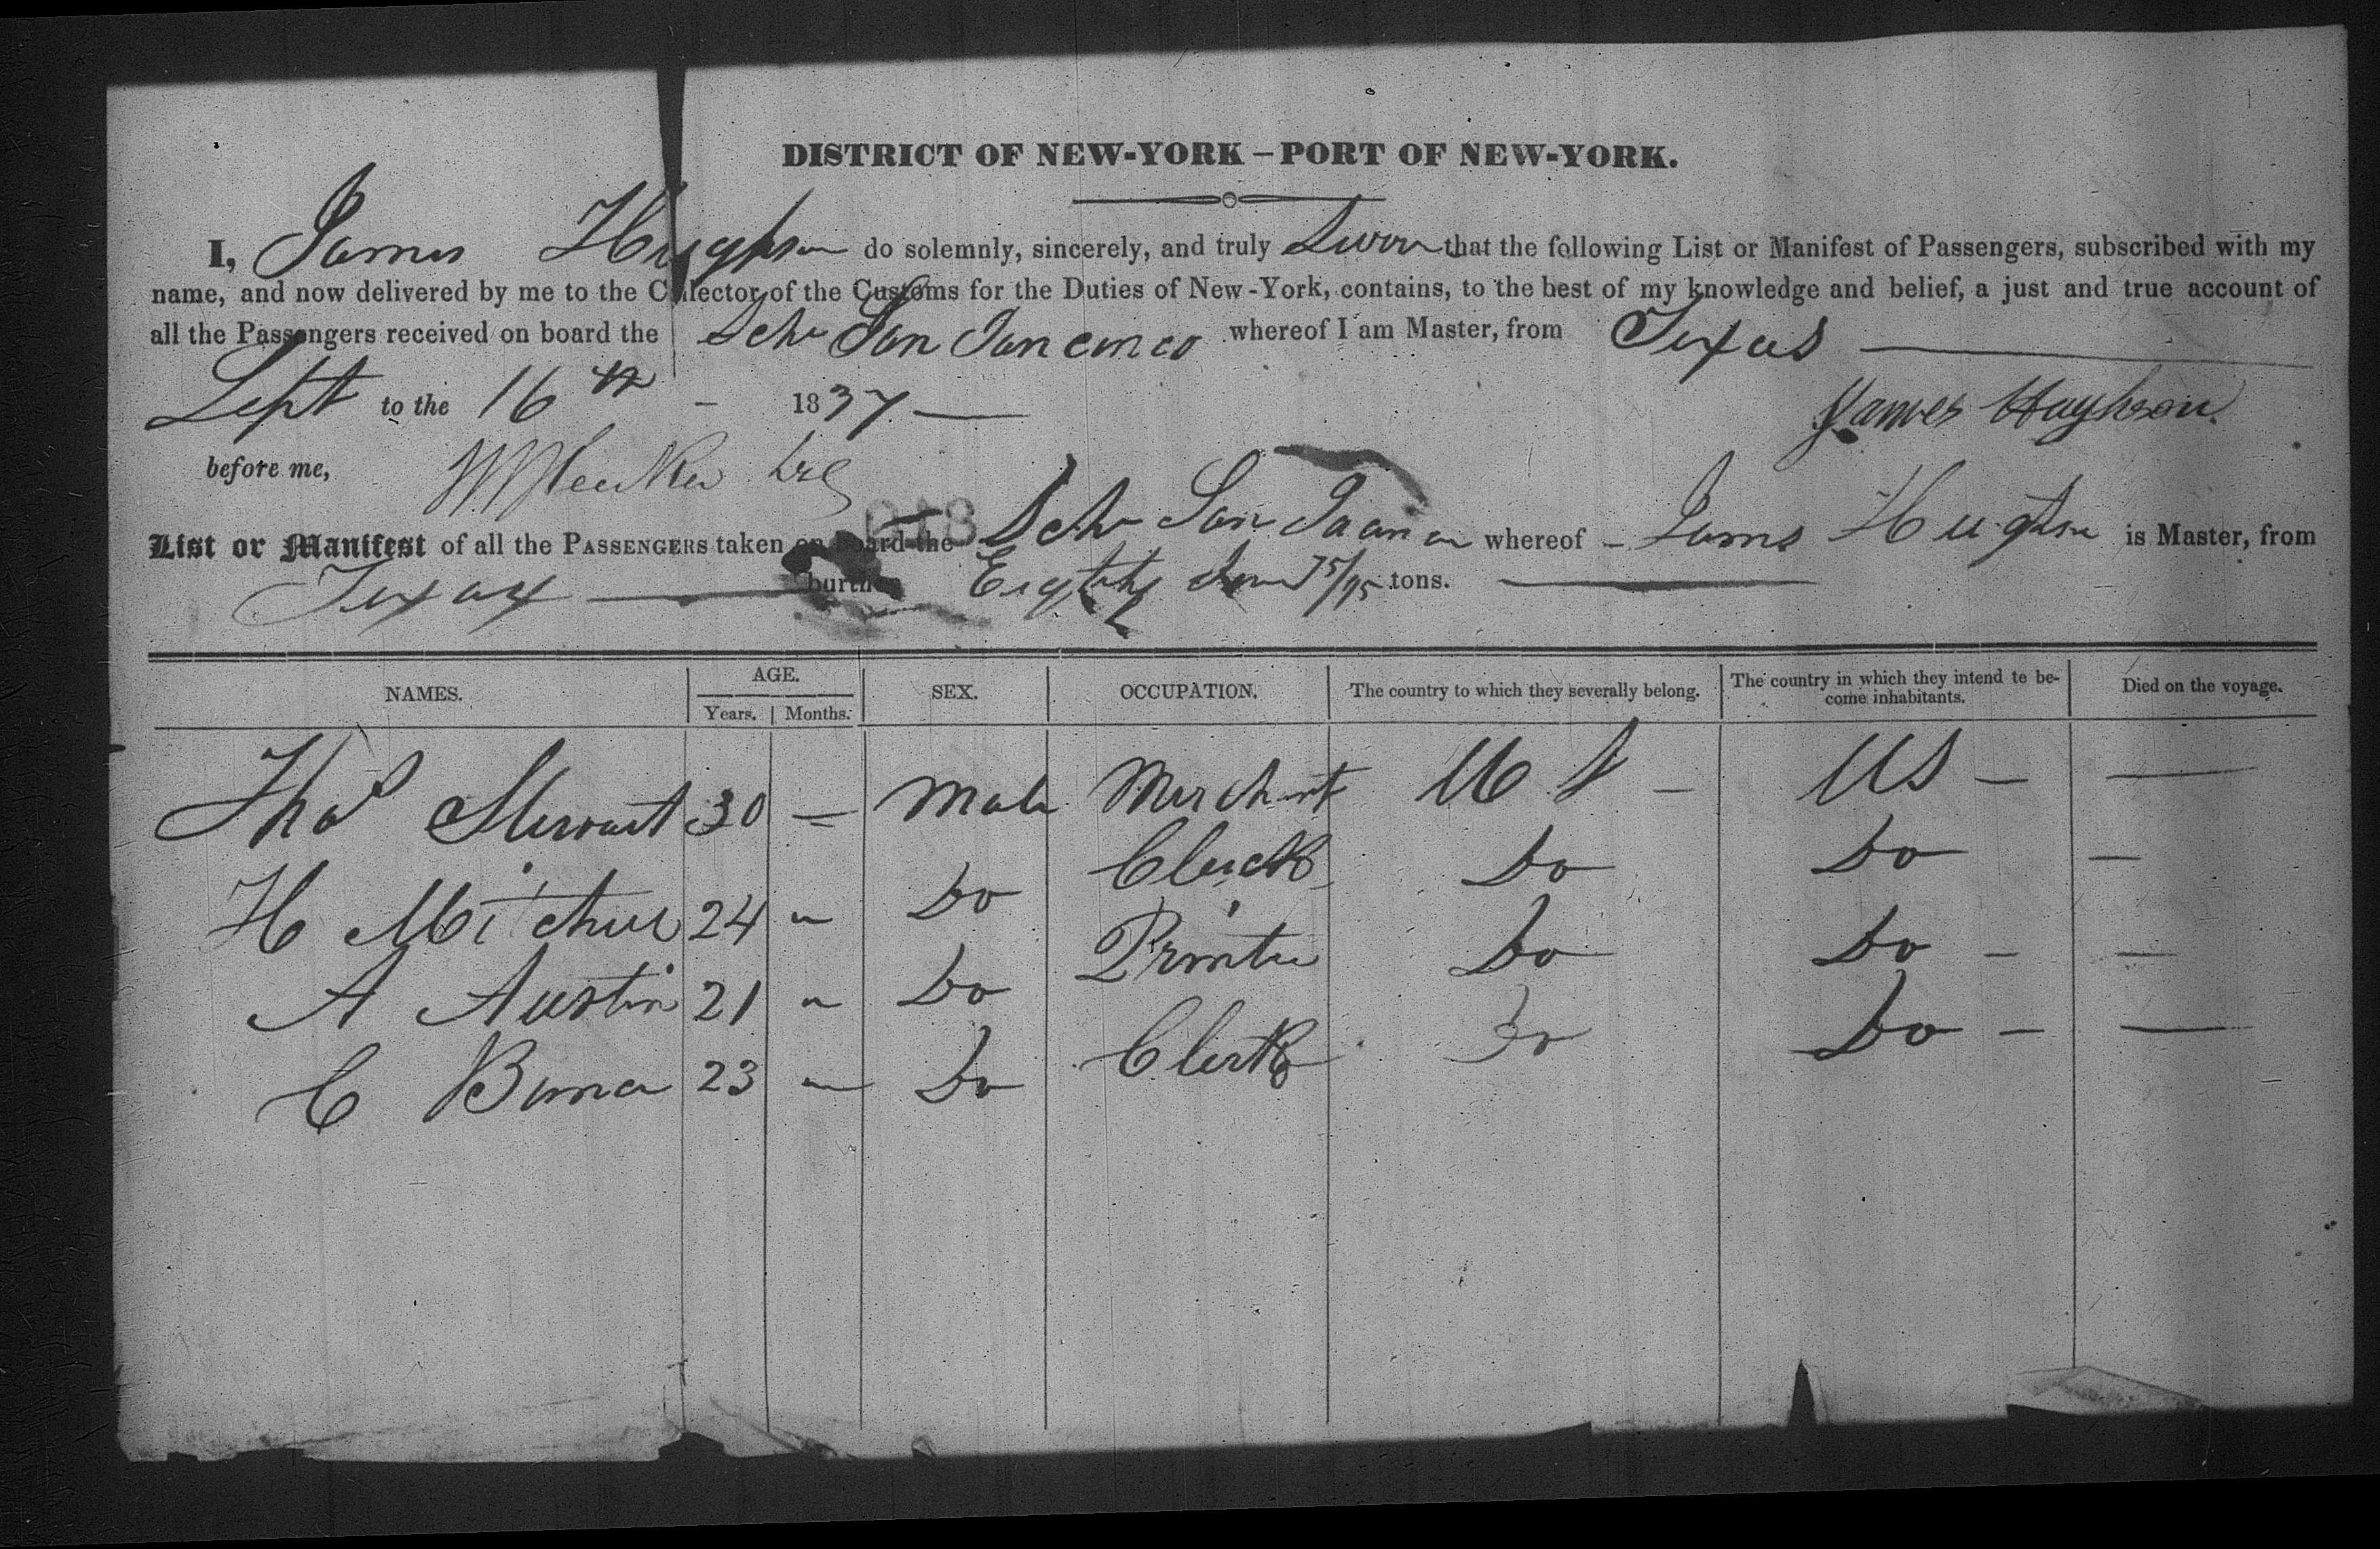 DISTRICT OF NEW-YORK – PORT OF NEW-YORK.
I, James Hughson do solemnly, sincerely, and truly Swear that the following List or Manifest of Passengers, subscribed with my
name, and now delivered by me to the Collector of the Customs for the Duties of New-York, contains, to the best of my knowledge and belief, a just and true account of
all the Passengers received on board the Schr San whereof I am Master, from Texas
Sept to the 16th – 1837
James Hughson
before me,
List or Manifest of all the PASSENGERS taken on board the Schr San whereof – James Hughson is Master, from
burthen Eighty 75/95 tons.
NAMES. AGE. SEX. OCCUPATION. The country to which they severally belong. The country in which they intend to be-
come inhabitants. Died on the voyage.
Years. Months.
Thos Stewart 30 — Male Merchant U S – US – —
H 24 " Do Clerk Do Do —
A Austin 21 " Do Printer Do Do – —
C 23 " Do Clerk Do Do – —